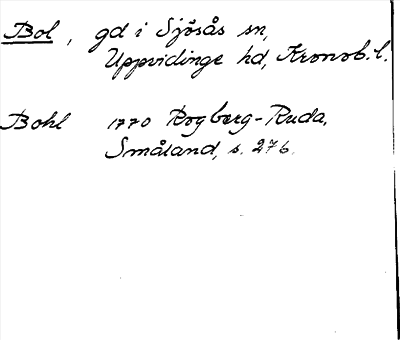 Bol, gd i Sjösås sn,
Uppvidinge hd, Kronob. l.
Bohl 1770 Rogberg-Ruda,
Småland, s. 276.